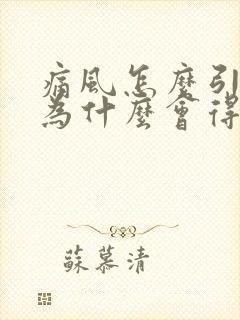 痛風怎麼引
為什麼會得
蘇慕清